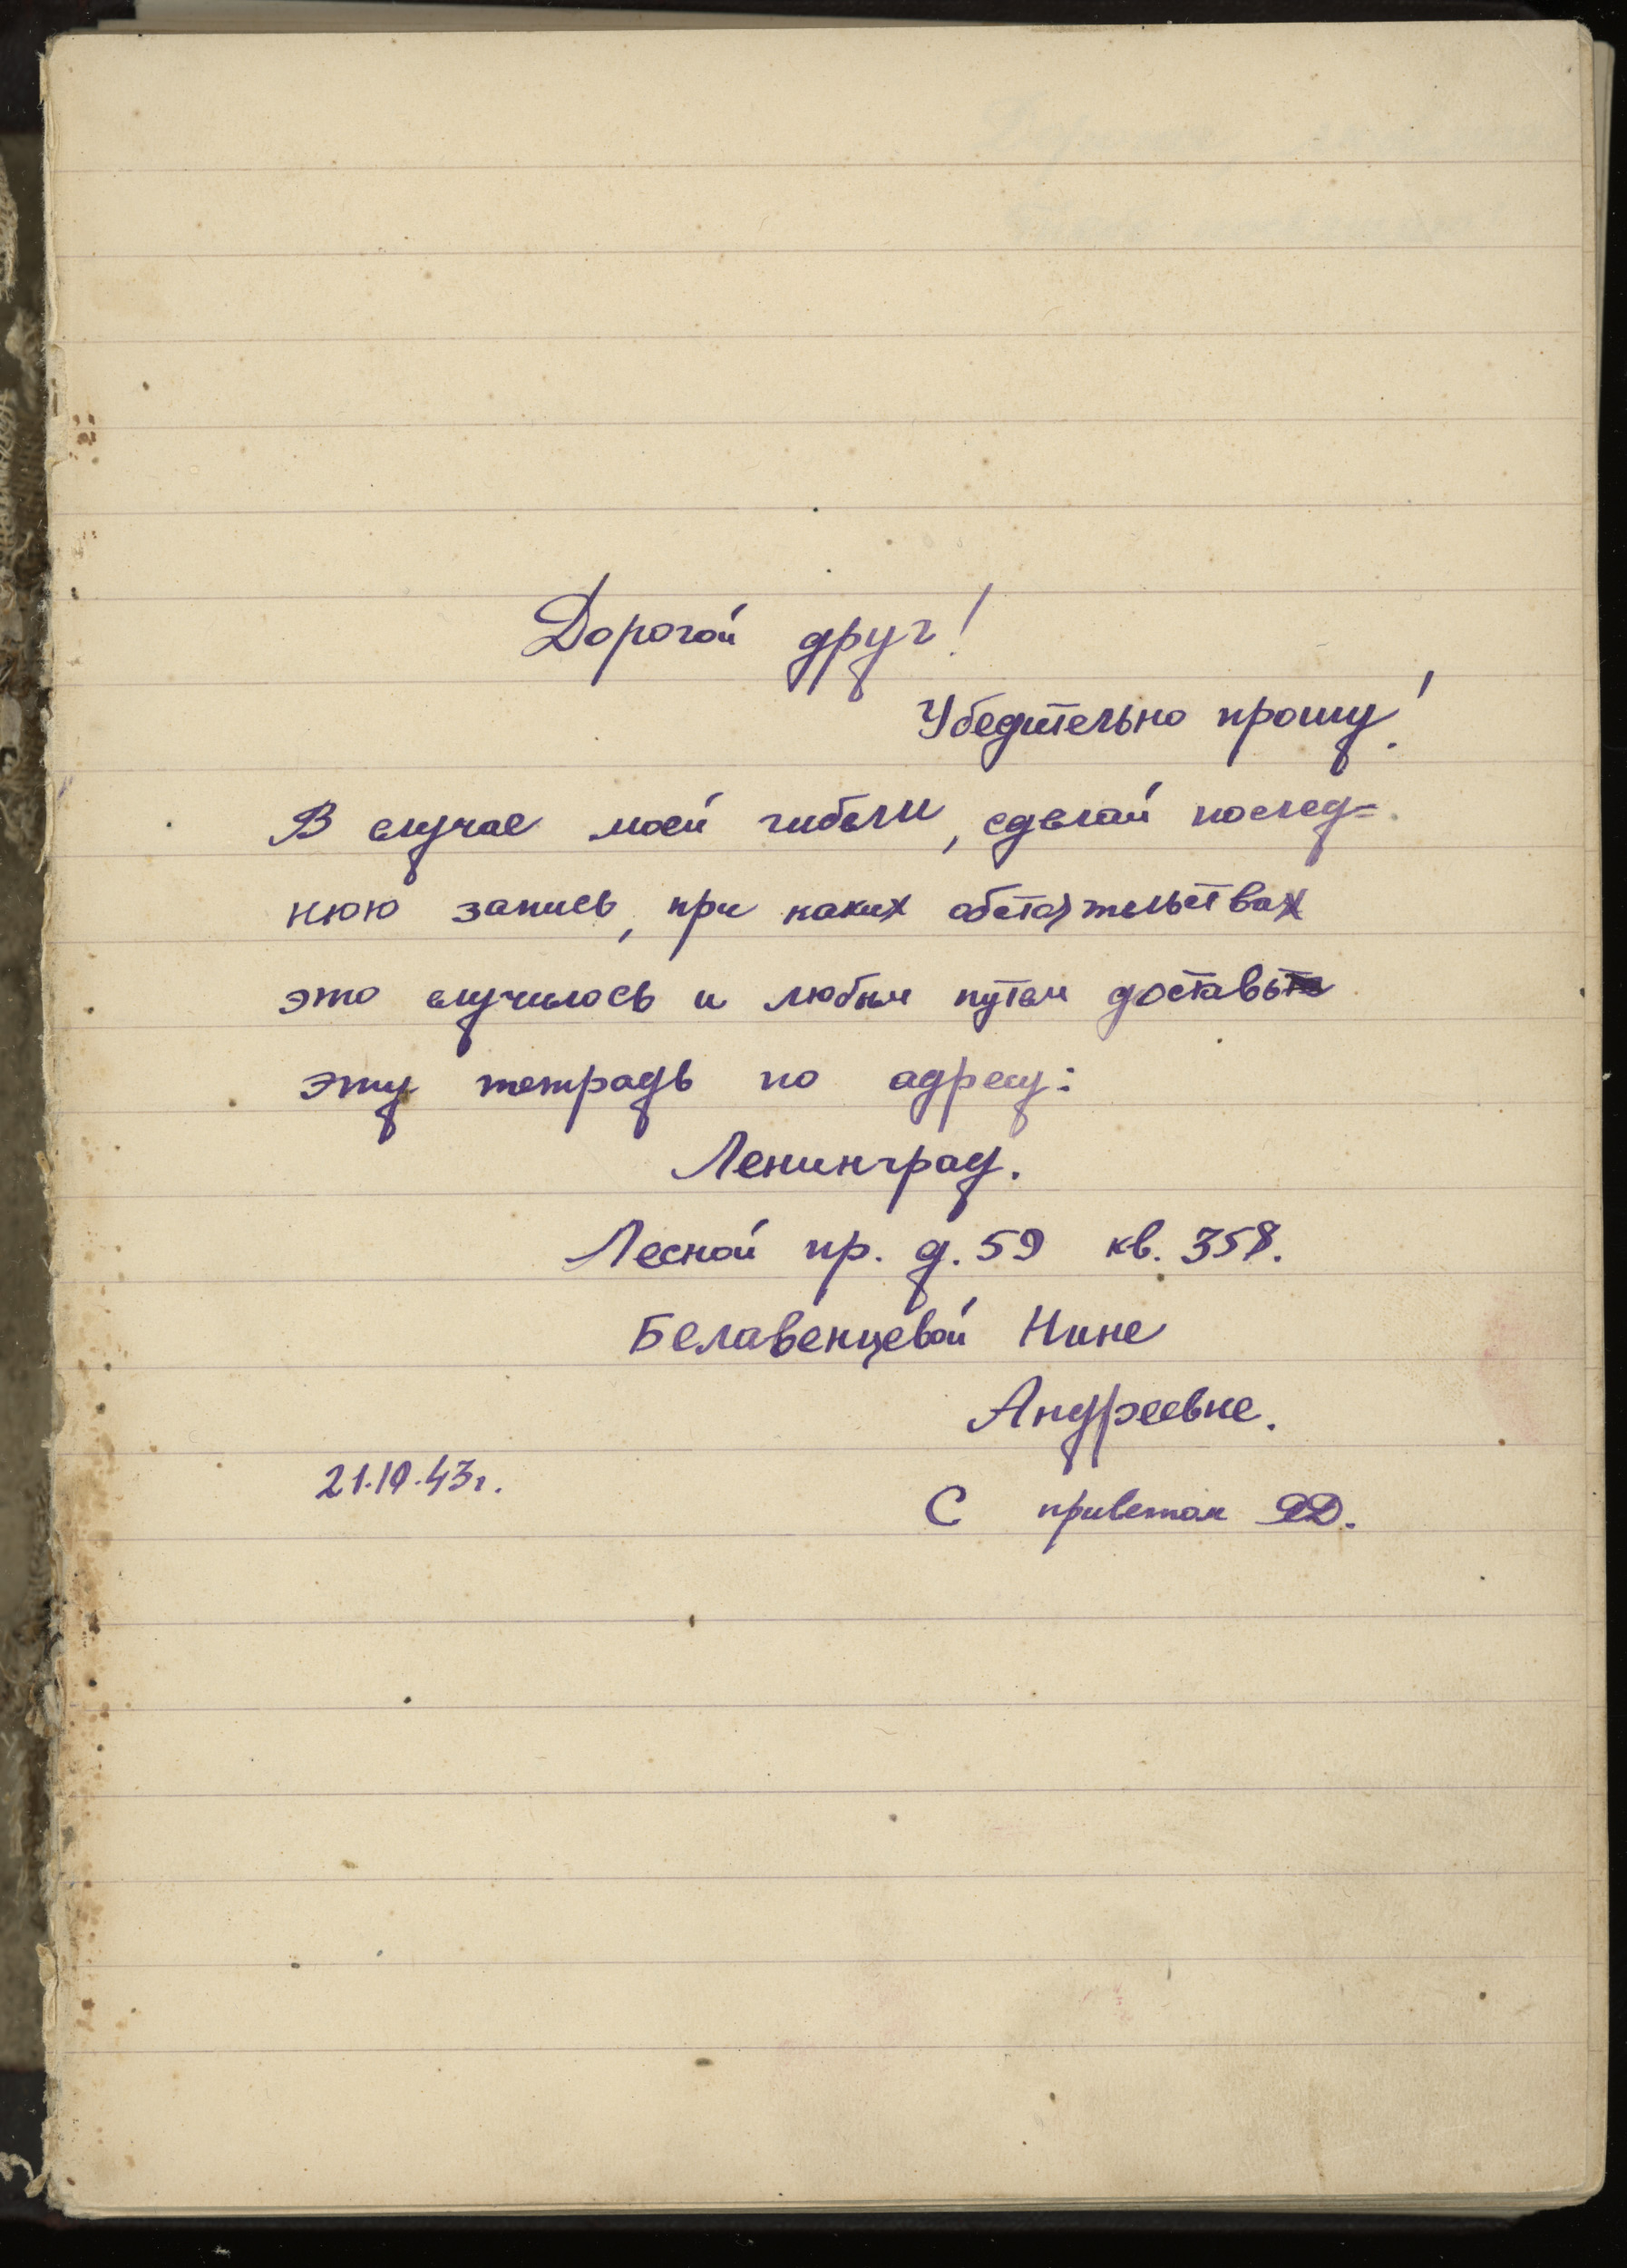 Дорогой друг!
Убедительно прошу!
В случае моей гибели, сделай послед=
нюю запись, при каких обстоятельствах
это случилось и любым путем доставь
эту тетрадь по адресу:
Ленинград.
Лесной пр. д. 59 кв. 358.
Белавенцевой Нине
Андреевне.
21.10.43г.
С приветом